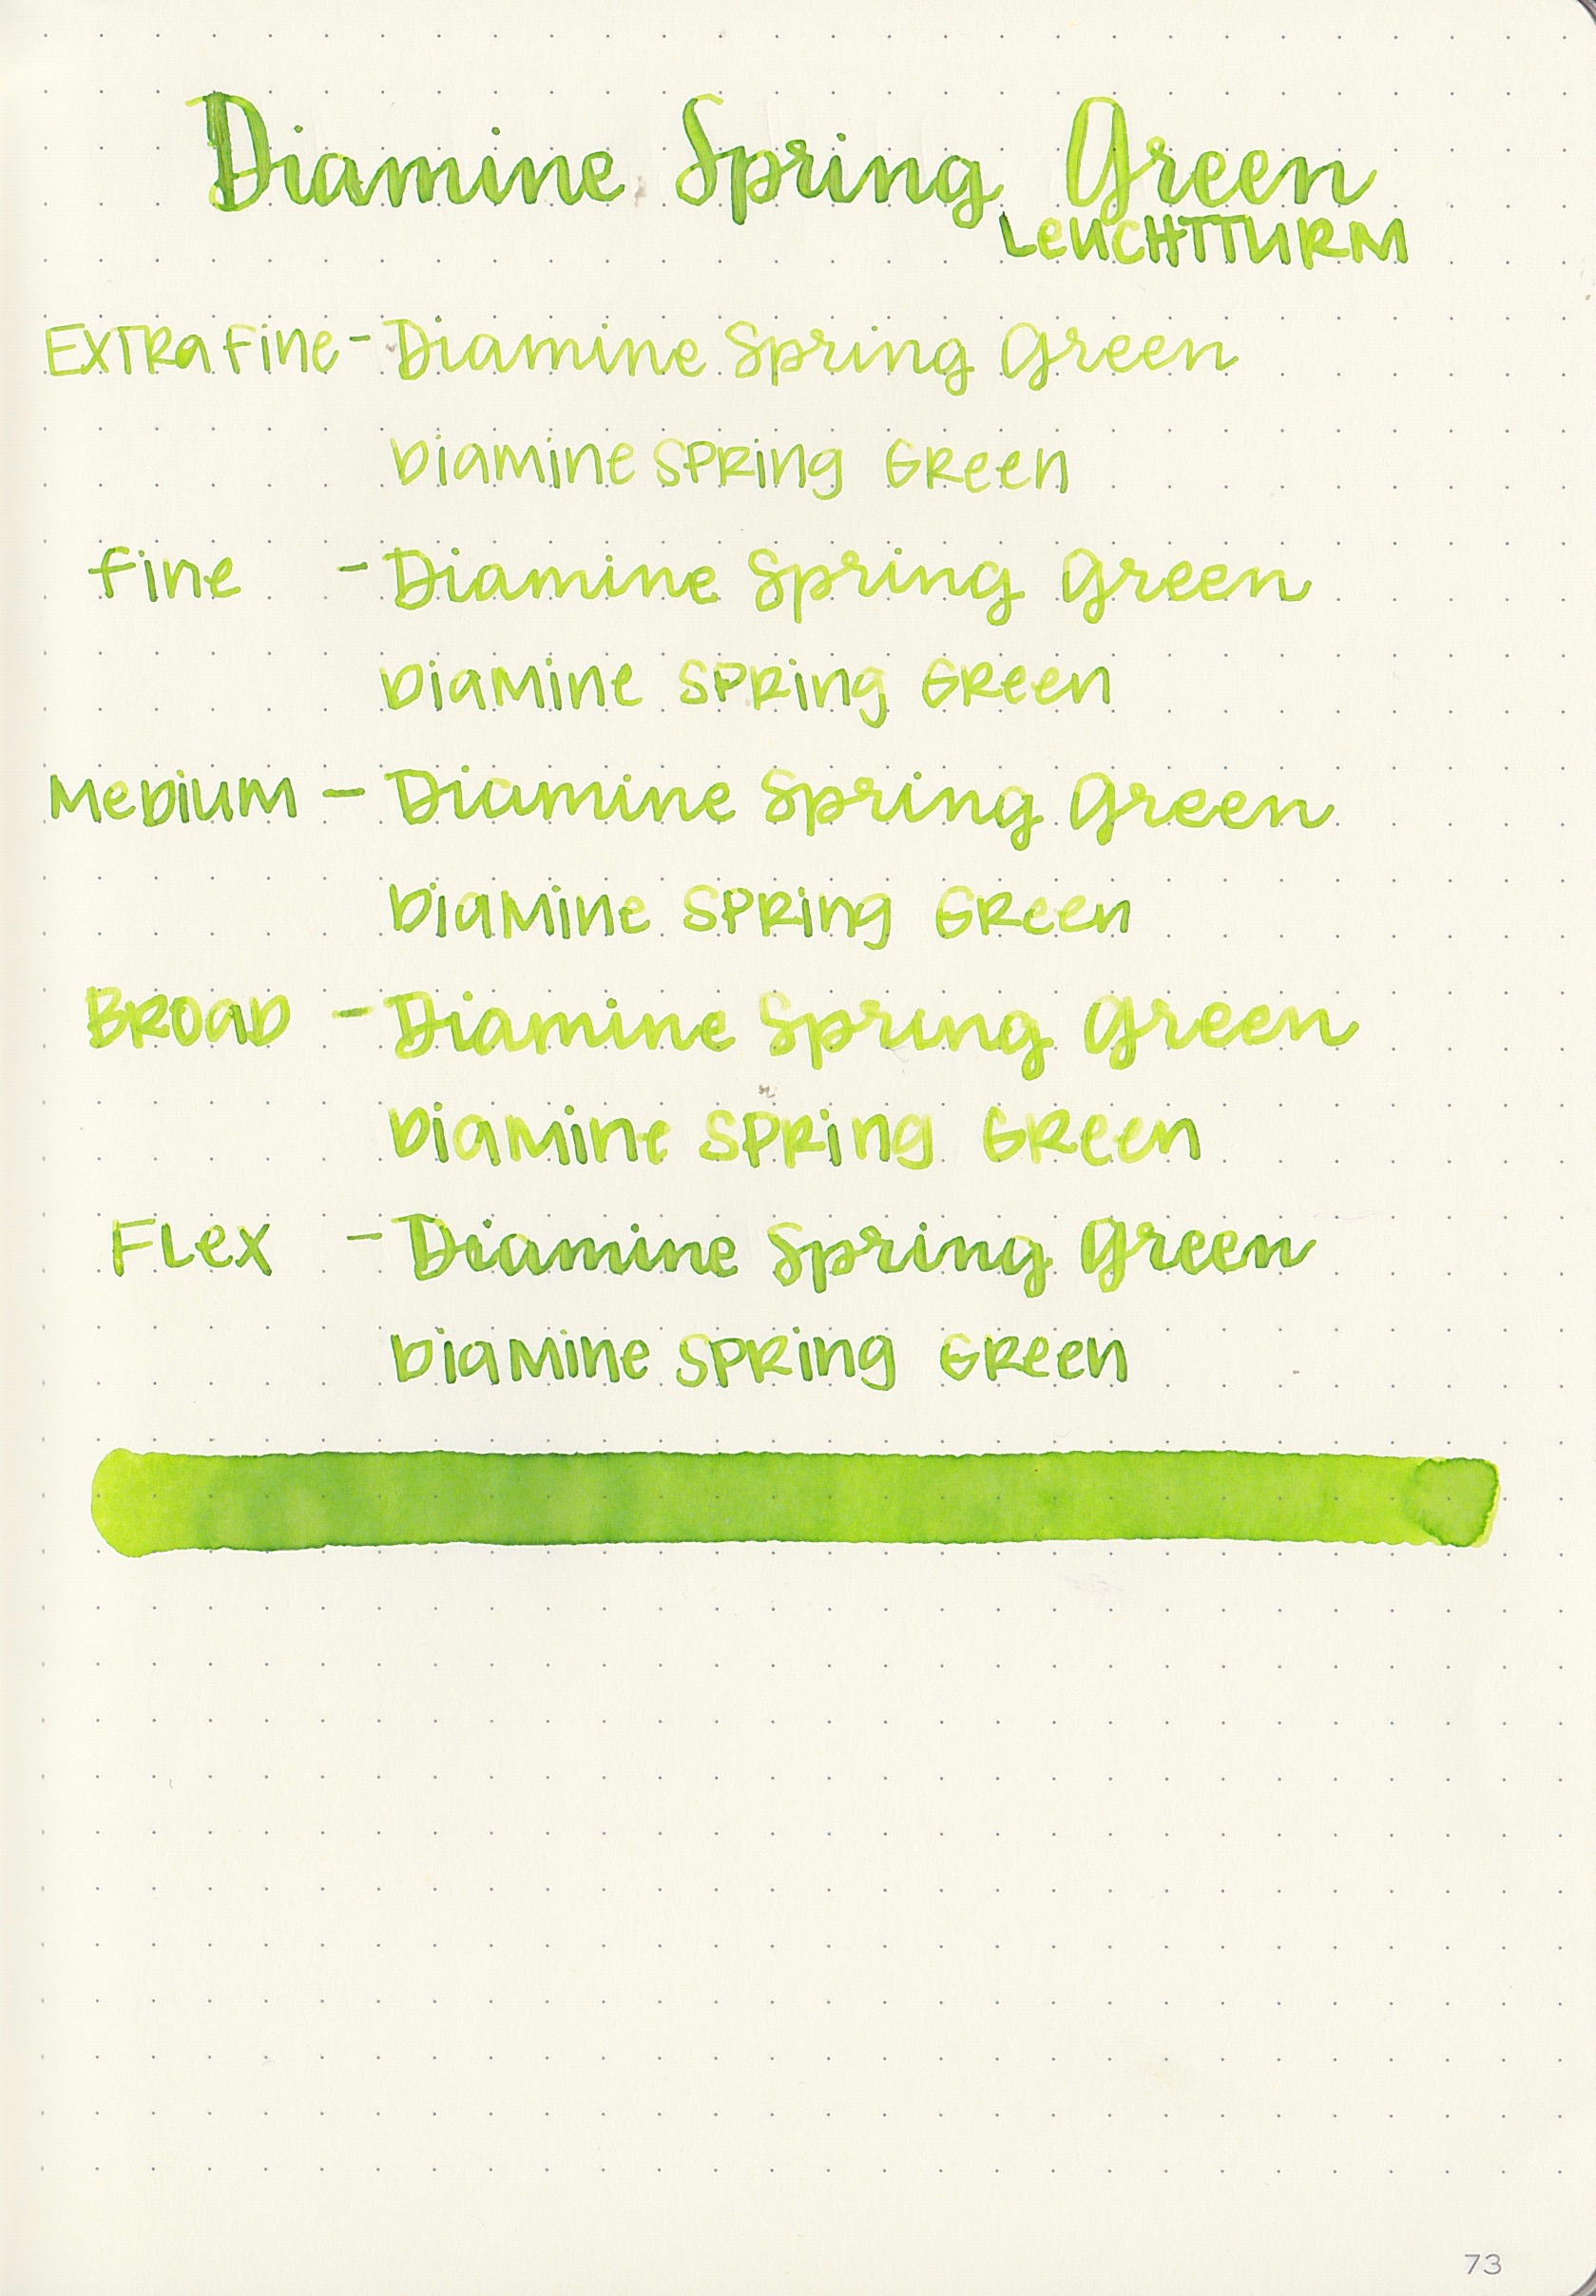 Diamine Spring Green
LEUCHTTURM
EXTRA FINE - Diamine Spring Green
DIAMINE SPRING GREEN
FINE - Diamine Spring Green
DIAMINE SPRING GREEN
MEDIUM - Diamine Spring Green
DIAMINE SPRING GREEN
BROAD - Diamine Spring Green
DIAMINE SPRING GREEN
FLEX - Diamine Spring Green
DIAMINE SPRING GREEN
73